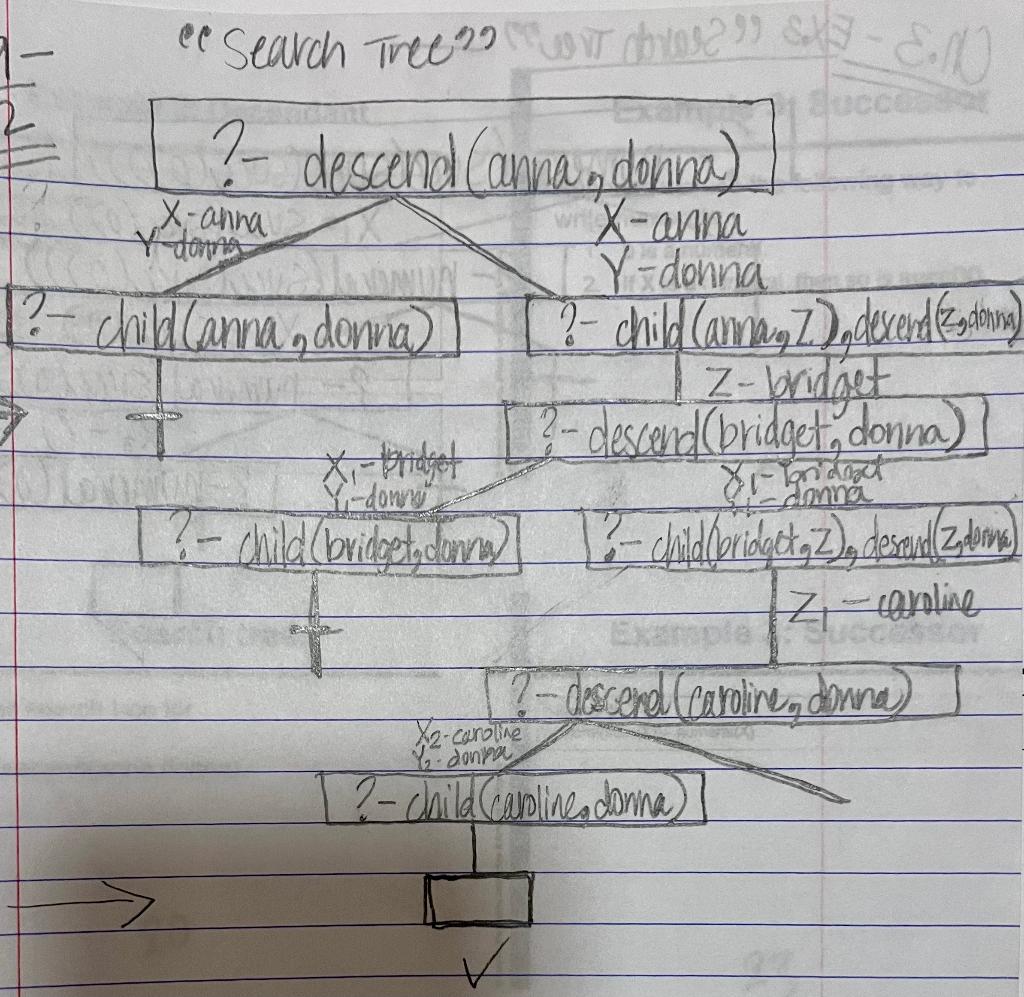 “Search Tree”
2
?- descend(anna, donna)
X-anna
Y-donna
X-anna
Y-donna
?- child(anna, donna)
?- child(anna, Z), descend(z, donna)
Z-bridget
?- descend(bridget, donna)
X₁-bridget
Y₁-donna
X₁-bridget
Y₁-donna
?- child(bridget, donna)
?- child(bridget, Z), descend(z, donna)
Z₁-caroline
?- descend(caroline, donna)
X₂-caroline
Y₂-donna
?- child(caroline, donna)